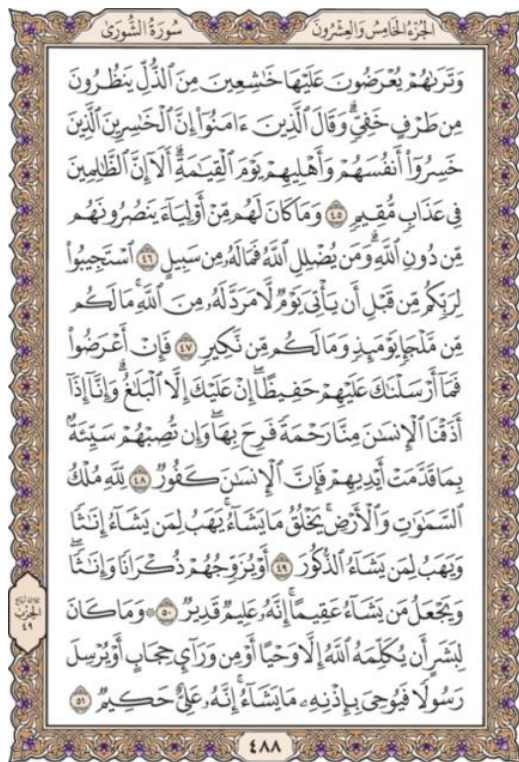 الجُزْءُ الخَامِسُ وَالعِشْرُونَ سُورَةُ الشُّورَىٰ
وَتَرَىٰهُمْ يُعْرَضُونَ عَلَيْهَا خَٰشِعِينَ مِنَ ٱلذُّلِّ يَنظُرُونَ
مِن طَرْفٍ خَفِىٍّۗ وَقَالَ ٱلَّذِينَ ءَامَنُوٓا۟ إِنَّ ٱلْخَٰسِرِينَ ٱلَّذِينَ
خَسِرُوٓا۟ أَنفُسَهُمْ وَأَهْلِيهِمْ يَوْمَ ٱلْقِيَٰمَةِۗ أَلَآ إِنَّ ٱلظَّٰلِمِينَ
فِى عَذَابٍ مُّقِيمٍ ٤٥ وَمَا كَانَ لَهُم مِّنْ أَوْلِيَآءَ يَنصُرُونَهُم
مِّن دُونِ ٱللَّهِۗ وَمَن يُضْلِلِ ٱللَّهُ فَمَا لَهُۥ مِن سَبِيلٍ ٤٦ ٱسْتَجِيبُوا۟
لِرَبِّكُم مِّن قَبْلِ أَن يَأْتِىَ يَوْمٌ لَّا مَرَدَّ لَهُۥ مِنَ ٱللَّهِۚ مَا لَكُم
مِّن مَّلْجَإٍ يَوْمَئِذٍ وَمَا لَكُم مِّن نَّكِيرٍ ٤٧ فَإِنْ أَعْرَضُوا۟
فَمَآ أَرْسَلْنَٰكَ عَلَيْهِمْ حَفِيظًاۖ إِنْ عَلَيْكَ إِلَّا ٱلْبَلَٰغُۗ وَإِنَّآ إِذَآ
أَذَقْنَا ٱلْإِنسَٰنَ مِنَّا رَحْمَةً فَرِحَ بِهَاۖ وَإِن تُصِبْهُمْ سَيِّئَةٌۢ
بِمَا قَدَّمَتْ أَيْدِيهِمْ فَإِنَّ ٱلْإِنسَٰنَ كَفُورٌ ٤٨ لِّلَّهِ مُلْكُ
ٱلسَّمَٰوَٰتِ وَٱلْأَرْضِۚ يَخْلُقُ مَا يَشَآءُۚ يَهَبُ لِمَن يَشَآءُ إِنَٰثًا
وَيَهَبُ لِمَن يَشَآءُ ٱلذُّكُورَ ٤٩ أَوْ يُزَوِّجُهُمْ ذُكْرَانًا وَإِنَٰثًاۖ
وَيَجْعَلُ مَن يَشَآءُ عَقِيمًاۚ إِنَّهُۥ عَلِيمٌ قَدِيرٌ ٥٠ ۞ وَمَا كَانَ
لِبَشَرٍ أَن يُكَلِّمَهُ ٱللَّهُ إِلَّا وَحْيًا أَوْ مِن وَرَآئِ حِجَابٍ أَوْ يُرْسِلَ
رَسُولًا فَيُوحِىَ بِإِذْنِهِۦ مَا يَشَآءُۚ إِنَّهُۥ عَلِىٌّ حَكِيمٌ ٥١
الحِزْب
٤٩
٤٨٨